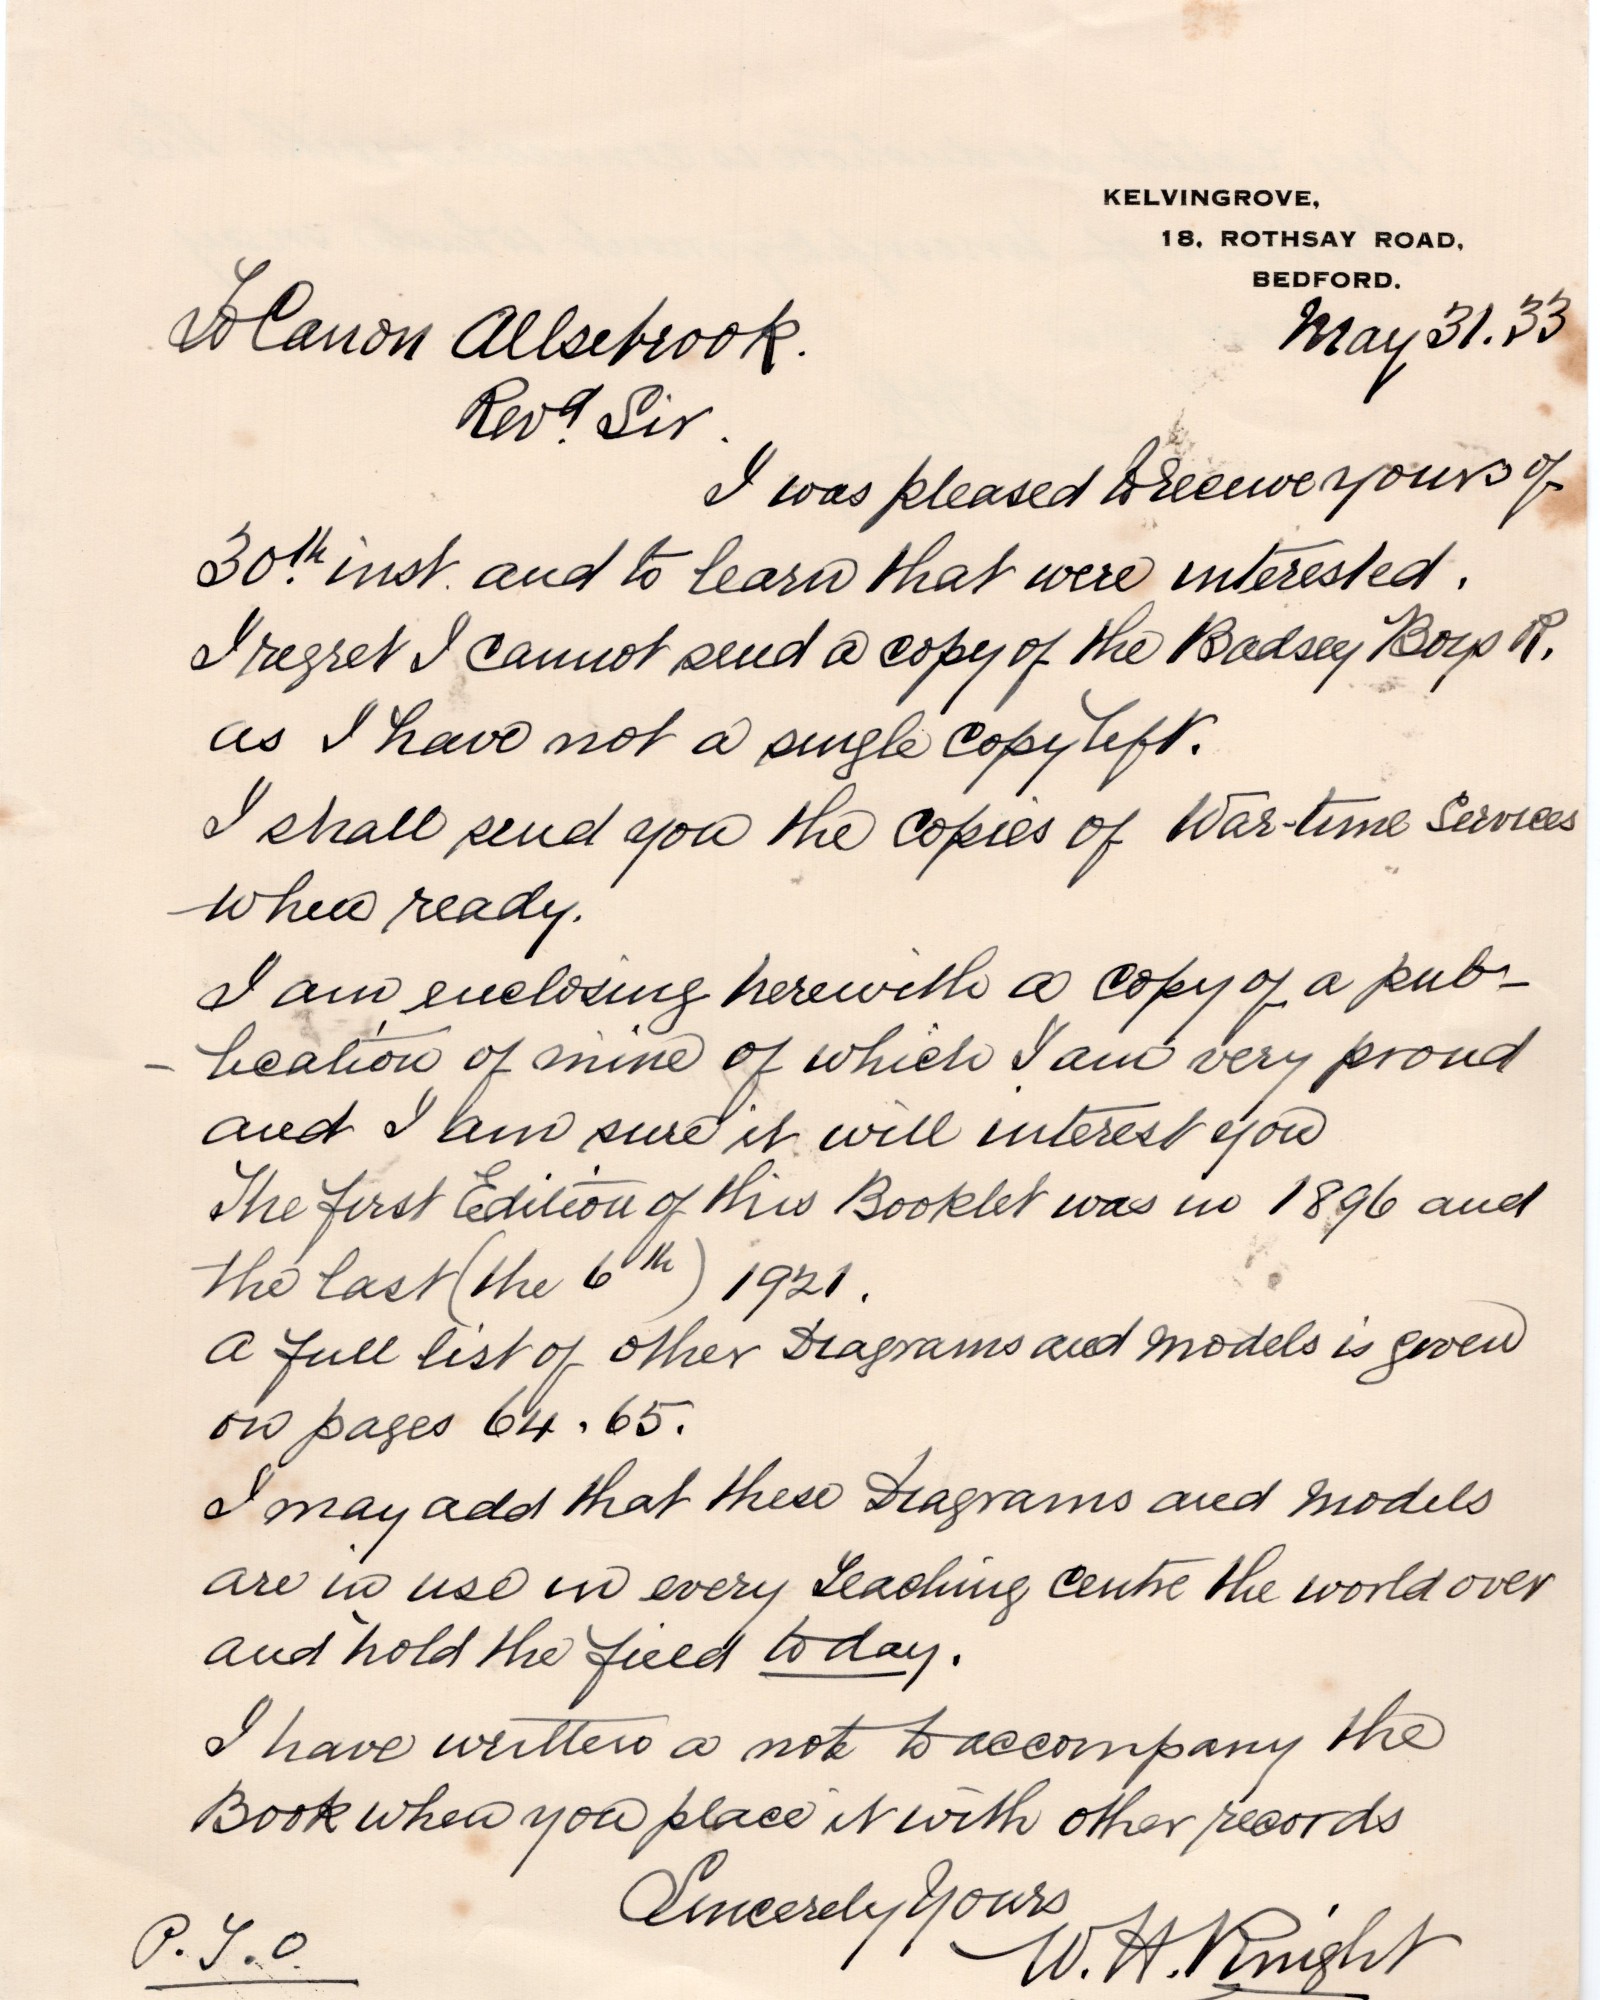 KELVINGROVE,
18, ROTHSAY ROAD,
BEDFORD.
May 31. 33
To Canon Allsebrook.
Revd. Sir.
I was pleased to receive yours of
30th. inst. and to learn that were interested.
I regret I cannot send a copy of the Badsey Boys R.
as I have not a single copy left.
I shall send you the copies of War-time Services
when ready.
I am enclosing herewith a copy of a pub-
-lication of mine of which I am very proud
and I am sure it will interest you
The first Edition of this Booklet was in 1896 and
the last (the 6th) 1921.
A full list of other Diagrams and Models is given
on pages 64.65.
I may add that these Diagrams and Models
are in use in every Teaching Centre the world over
and hold the field today.
I have written a note to accompany the
Book when you place it with other records
Sincerely Yours
W. H. Knight
P.T.O.